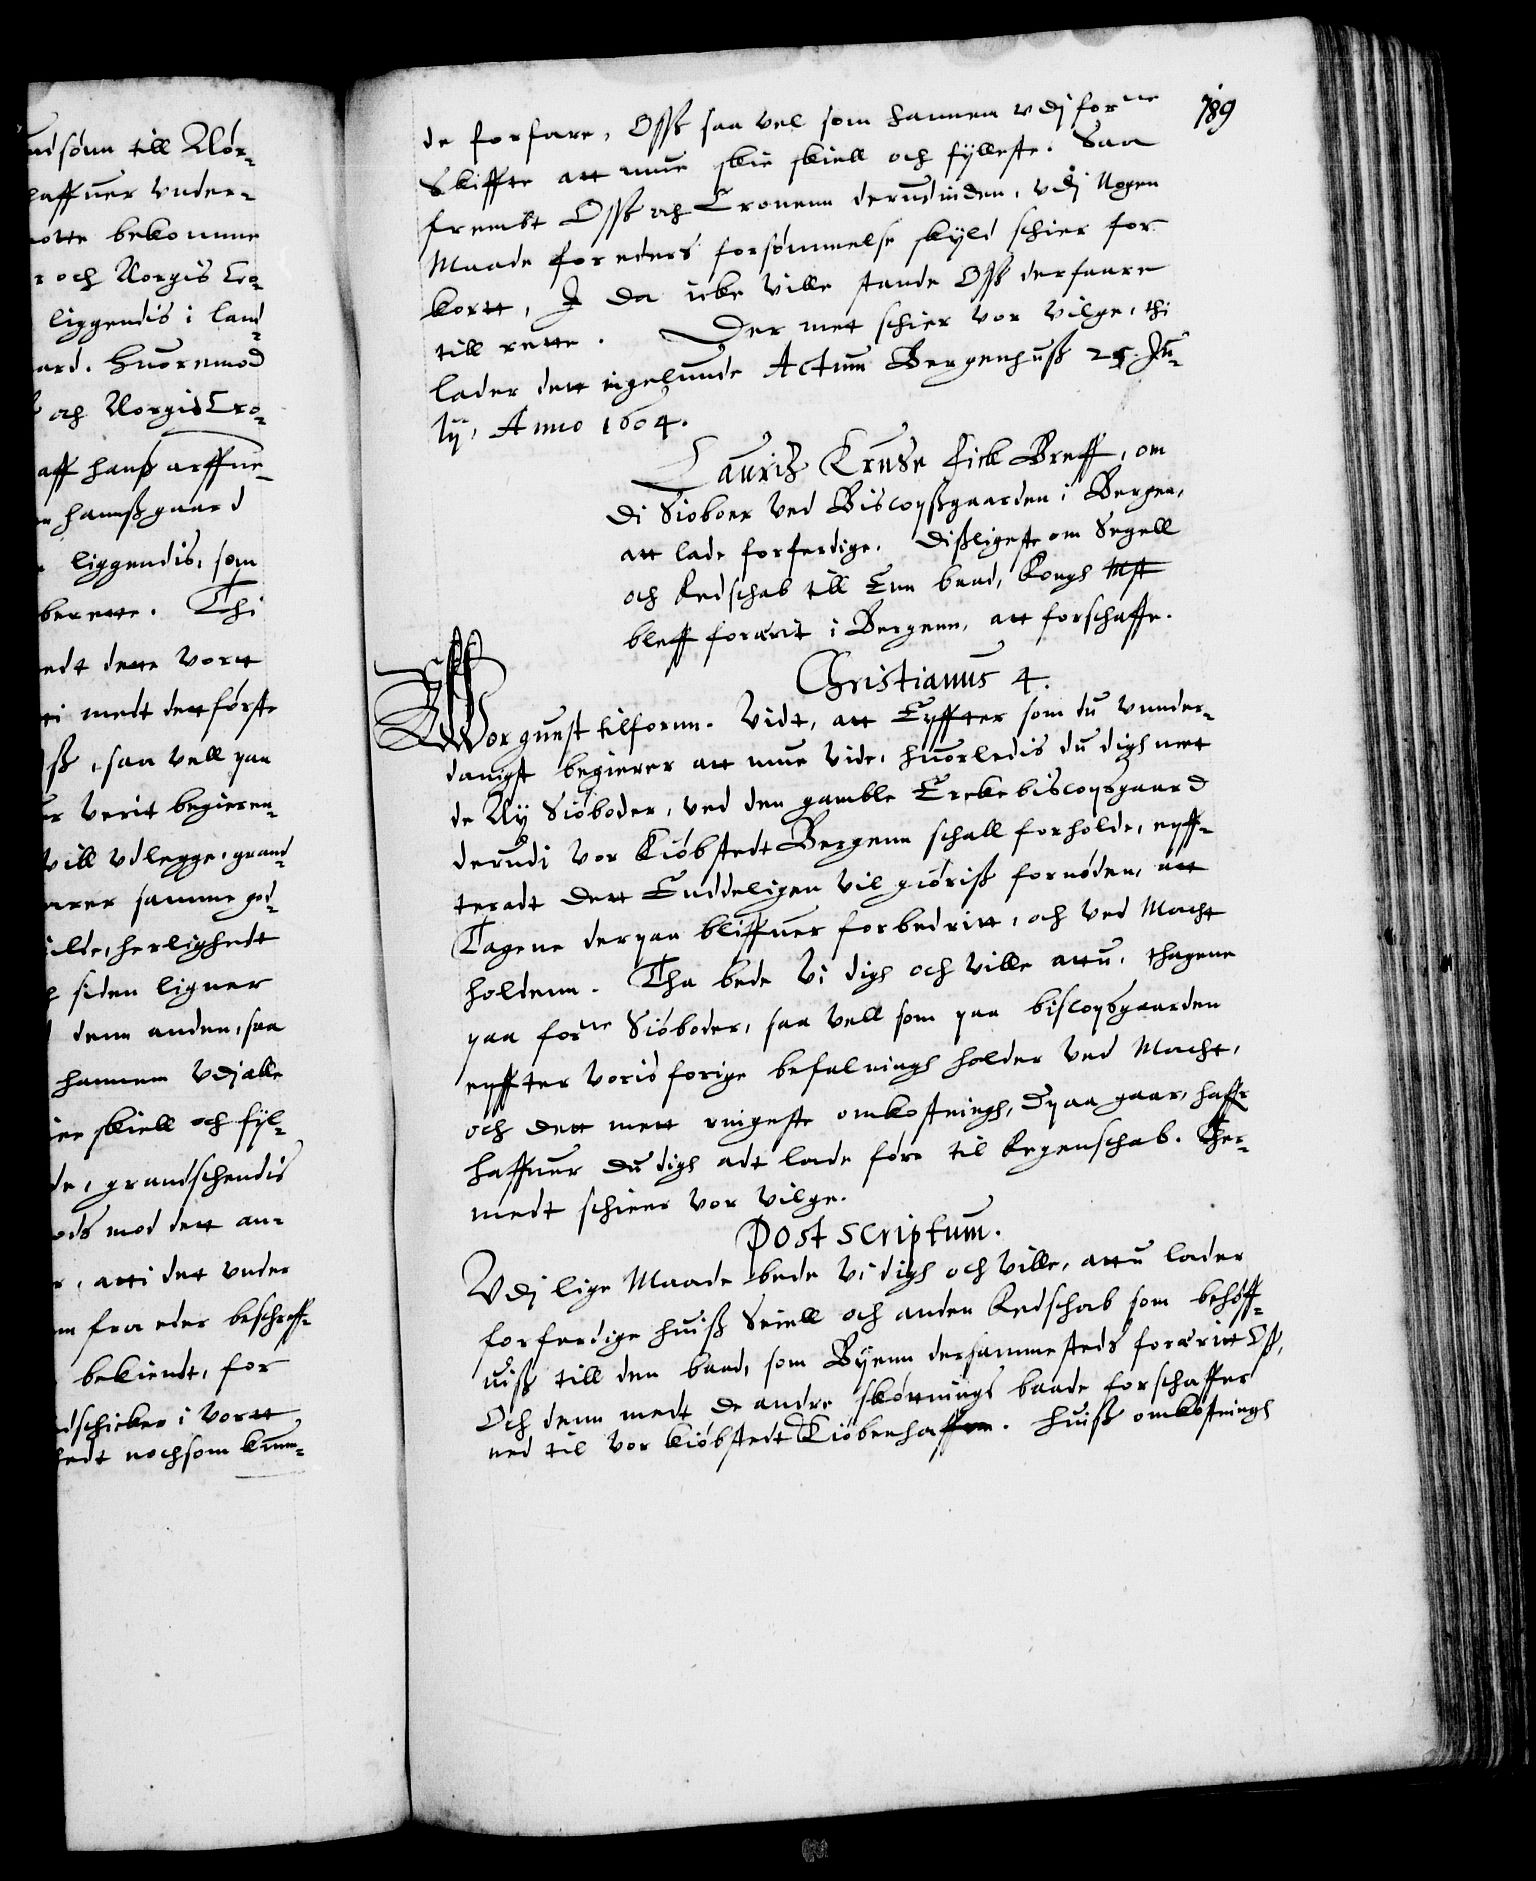 udsønn till Nør-
haffuer vnder-
motte bekomme
r och Norgis Cro-
liggendis i land-
aard. Huoremod
och Norgis Cro-
aff hanß arffue-
hanßgaard
liggendis, som
berette. Thi
edt dette vortt
ti medt dett første
ß, saa vell paa
er verit begieren-
vill vdlegge, grand-
arer samme god-
ilde, herlighedt
siden ligner
denn anden, saa
hannem vdj alle
ee skiell och fyl-
de, grandschendis
ods mod dett an-
r, att i det vnder
m fra eder beschreff-
bekiendt, for
dschicker i vortt
hedt nochsom kun-
189
de forfare, Oss saa vel som hannem vdj forne
Skiffte att mue skie skiell och fylleste. Saa
frembt Oss och Cronenn derudinden, vdj nogen
Maade for eders forsømmelse skyld schier for
kortt, J da icke ville stande Oss derfaare
till rette. Der mett schier vor vilge, thi
lader dett ingelunde Actum Bergenhuß 25. Ju-
ly, Anno 1604.
Lauritz Kruse fick Breff, om
di Sioboer ved Biscopßgaarden i Bergen,
att lade forferdige. Dißligeste om Segell
och Redschab till Enn baad, Kongh Mst
bleff forærit i Bergenn, att forschaffe.
Christianus 4.
Wor gunst tilfornn. Vidt, att Effter som du vnder-
danigst begierer att mue vide, huorledis du digh mett
de Ny Siøboder, ved den gamble Erckebiscopsgaard
derudi vor Kiøbstedt Bergenn schall forholde, eff-
teradt dett Endeligen vil giøriß fornøden, att
Tagene derpaa bliffuer forbedritt, och ved Macht
holdenn. Tha bede vi digh och ville attu, thagene
paa forne Siøboder, saa vell som paa biscopsgaarden
effter voris forige befalningh holder ved Macht,
och dett mett ringeste omkostningh, Dpaa gaar, haffr
haffuer du digh adt lade føre til Regenschab. Ther-
medt schier vor vilge.
Post scriptum.
Vdj lige Maade bede vi digh och ville, attu lader
forferdige huiß Seiell och anden Redschab som behøff-
uiß till den baad, som Byenn dersammesteds foræritt Oß,
Och denn medt de andre skøttnings baade forschaffer
ned til vor kiøbstedt Kiøbenhaffn. Huiß omkostningh